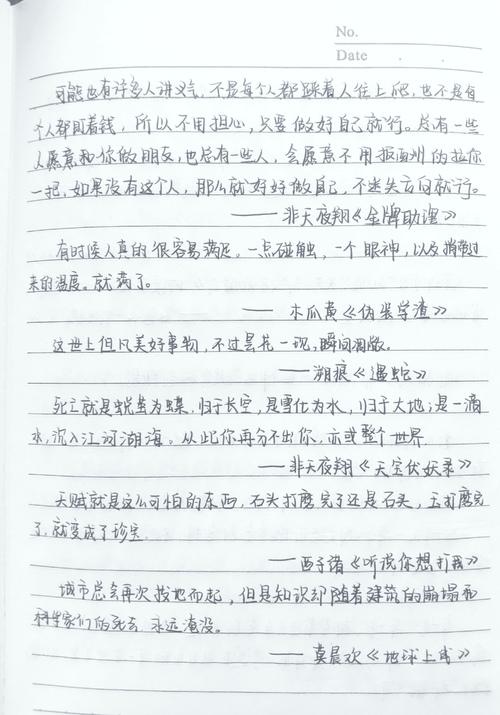 No.
Date
可能也有许多人讲义气,不是每个人都踩着人往上爬,也不是每
个人都盯着钱,所以不用担心,只要做好自己就行。总有一些
人愿意和你做朋友,也总有一些人,会愿意不用报酬的拉你
一把,如果没有这个人,那么就好好做自己,不迷失方向就行。
——非天夜翔《金牌助理》
有时候人真的很容易满足。一点碰触,一个眼神,以及捎带过
来的温度。就满了。
——木瓜黄《伪装学渣》
这世上但凡美好事物,不过昙花一现,瞬间凋敝。
——溯痕《遇蛇》
死亡就是蜕茧为蝶,归于长空,是雪化为水,归于大地;是一滴
水,沉入江河湖海。从此你再分不出你,亦或整个世界.
——非天夜翔《天宝伏妖录》
天赋就是这么可怕的东西,石头打磨完了还是石头,玉打磨完
了,就变成了珍宝.
——西子诸《听说你想打我》
城市总会再次拔地而起,但是知识却随着建筑的崩塌和
科学家们的死去.永远淹没。
——莫晨欢《地球上线》